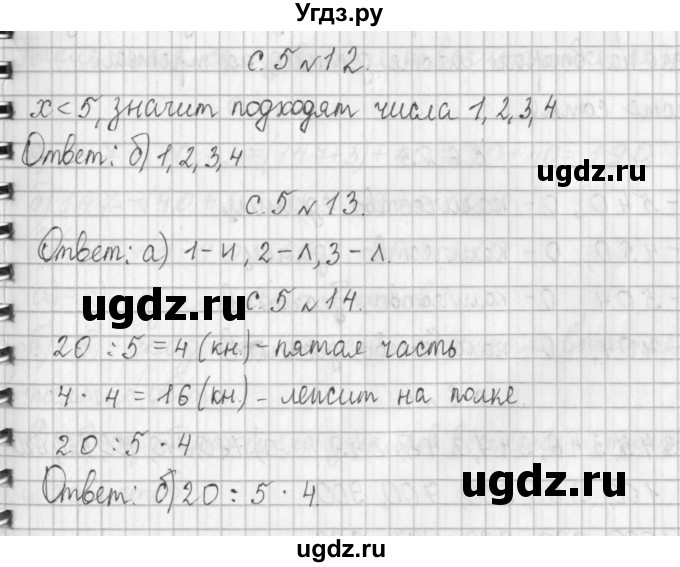 Угдз.ру
с. 5 №12.
x < 5, значит подходят числа 1, 2, 3, 4
Ответ: б) 1, 2, 3, 4
ugdz.ru
с. 5 №13.
Ответ: а) 1 – И, 2 – Л, 3 – Л.
ugdz.ru
с. 5 №14.
20 : 5 = 4 (кн.) – пятая часть
4 · 4 = 16 (кн.) – лежит на полке.
20 : 5 · 4
ugdz.ru
Ответ: б) 20 : 5 · 4.
ugdz.ru